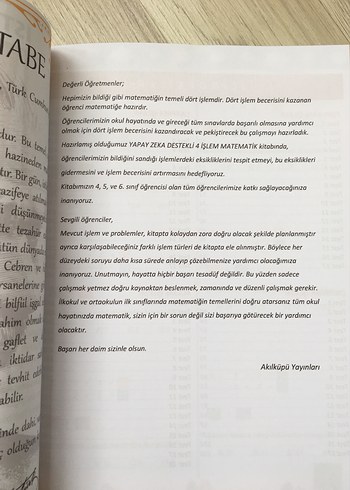 TABE
Türk
Değerli Öğretmenler;
Hepimizin bildiği gibi matematiğin temeli dört işlemdir. Dört işlem becerisini kazanan
öğrenci matematiğe hazırdır.
Öğrencilerimizin okul hayatında ve gireceği tüm sınavlarda başarılı olmasına yardımcı
olmak için dört işlem becerisini kazandıracak ve pekiştirecek bu çalışmayı hazırladık.
Hazırlamış olduğumuz YAPAY ZEKA DESTEKLİ 4 İŞLEM MATEMATİK kitabında,
öğrencilerimizin bildiğini sandığı işlemlerdeki eksikliklerini tespit etmeyi, bu eksiklikleri
gidermesini ve işlem becerisini artırmasını hedefliyoruz.
Kitabımızın 4, 5, ve 6. sınıf öğrencisi olan tüm öğrencilerimize katkı sağlayacağınıza
inanıyoruz.
Sevgili öğrenciler,
Mevcut işlem ve problemler, kitapta kolaydan zora doğru olacak şekilde planlanmıştır
ayrıca karşılaşabileceğiniz farklı işlem türleri de kitapta ele alınmıştır. Böylece her
düzeydeki soruyu daha kısa sürede anlayıp çözebilmenize yardımcı olacağımıza
inanıyoruz. Unutmayın, hayatta hiçbir başarı tesadüf değildir. Bu yüzden sadece
çalışmak yetmez doğru kaynaktan beslenmek, zamanında ve düzenli çalışmak gerekir.
İlkokul ve ortaokulun ilk sınıflarında matematiğin temellerini doğru atarsanız tüm okul
hayatınızda matematik, sizin için bir sorun değil sizi başarıya götürecek bir yardımcı
olacaktır.
Başarı her daim sizinle olsun.
Akılküpü Yayınları